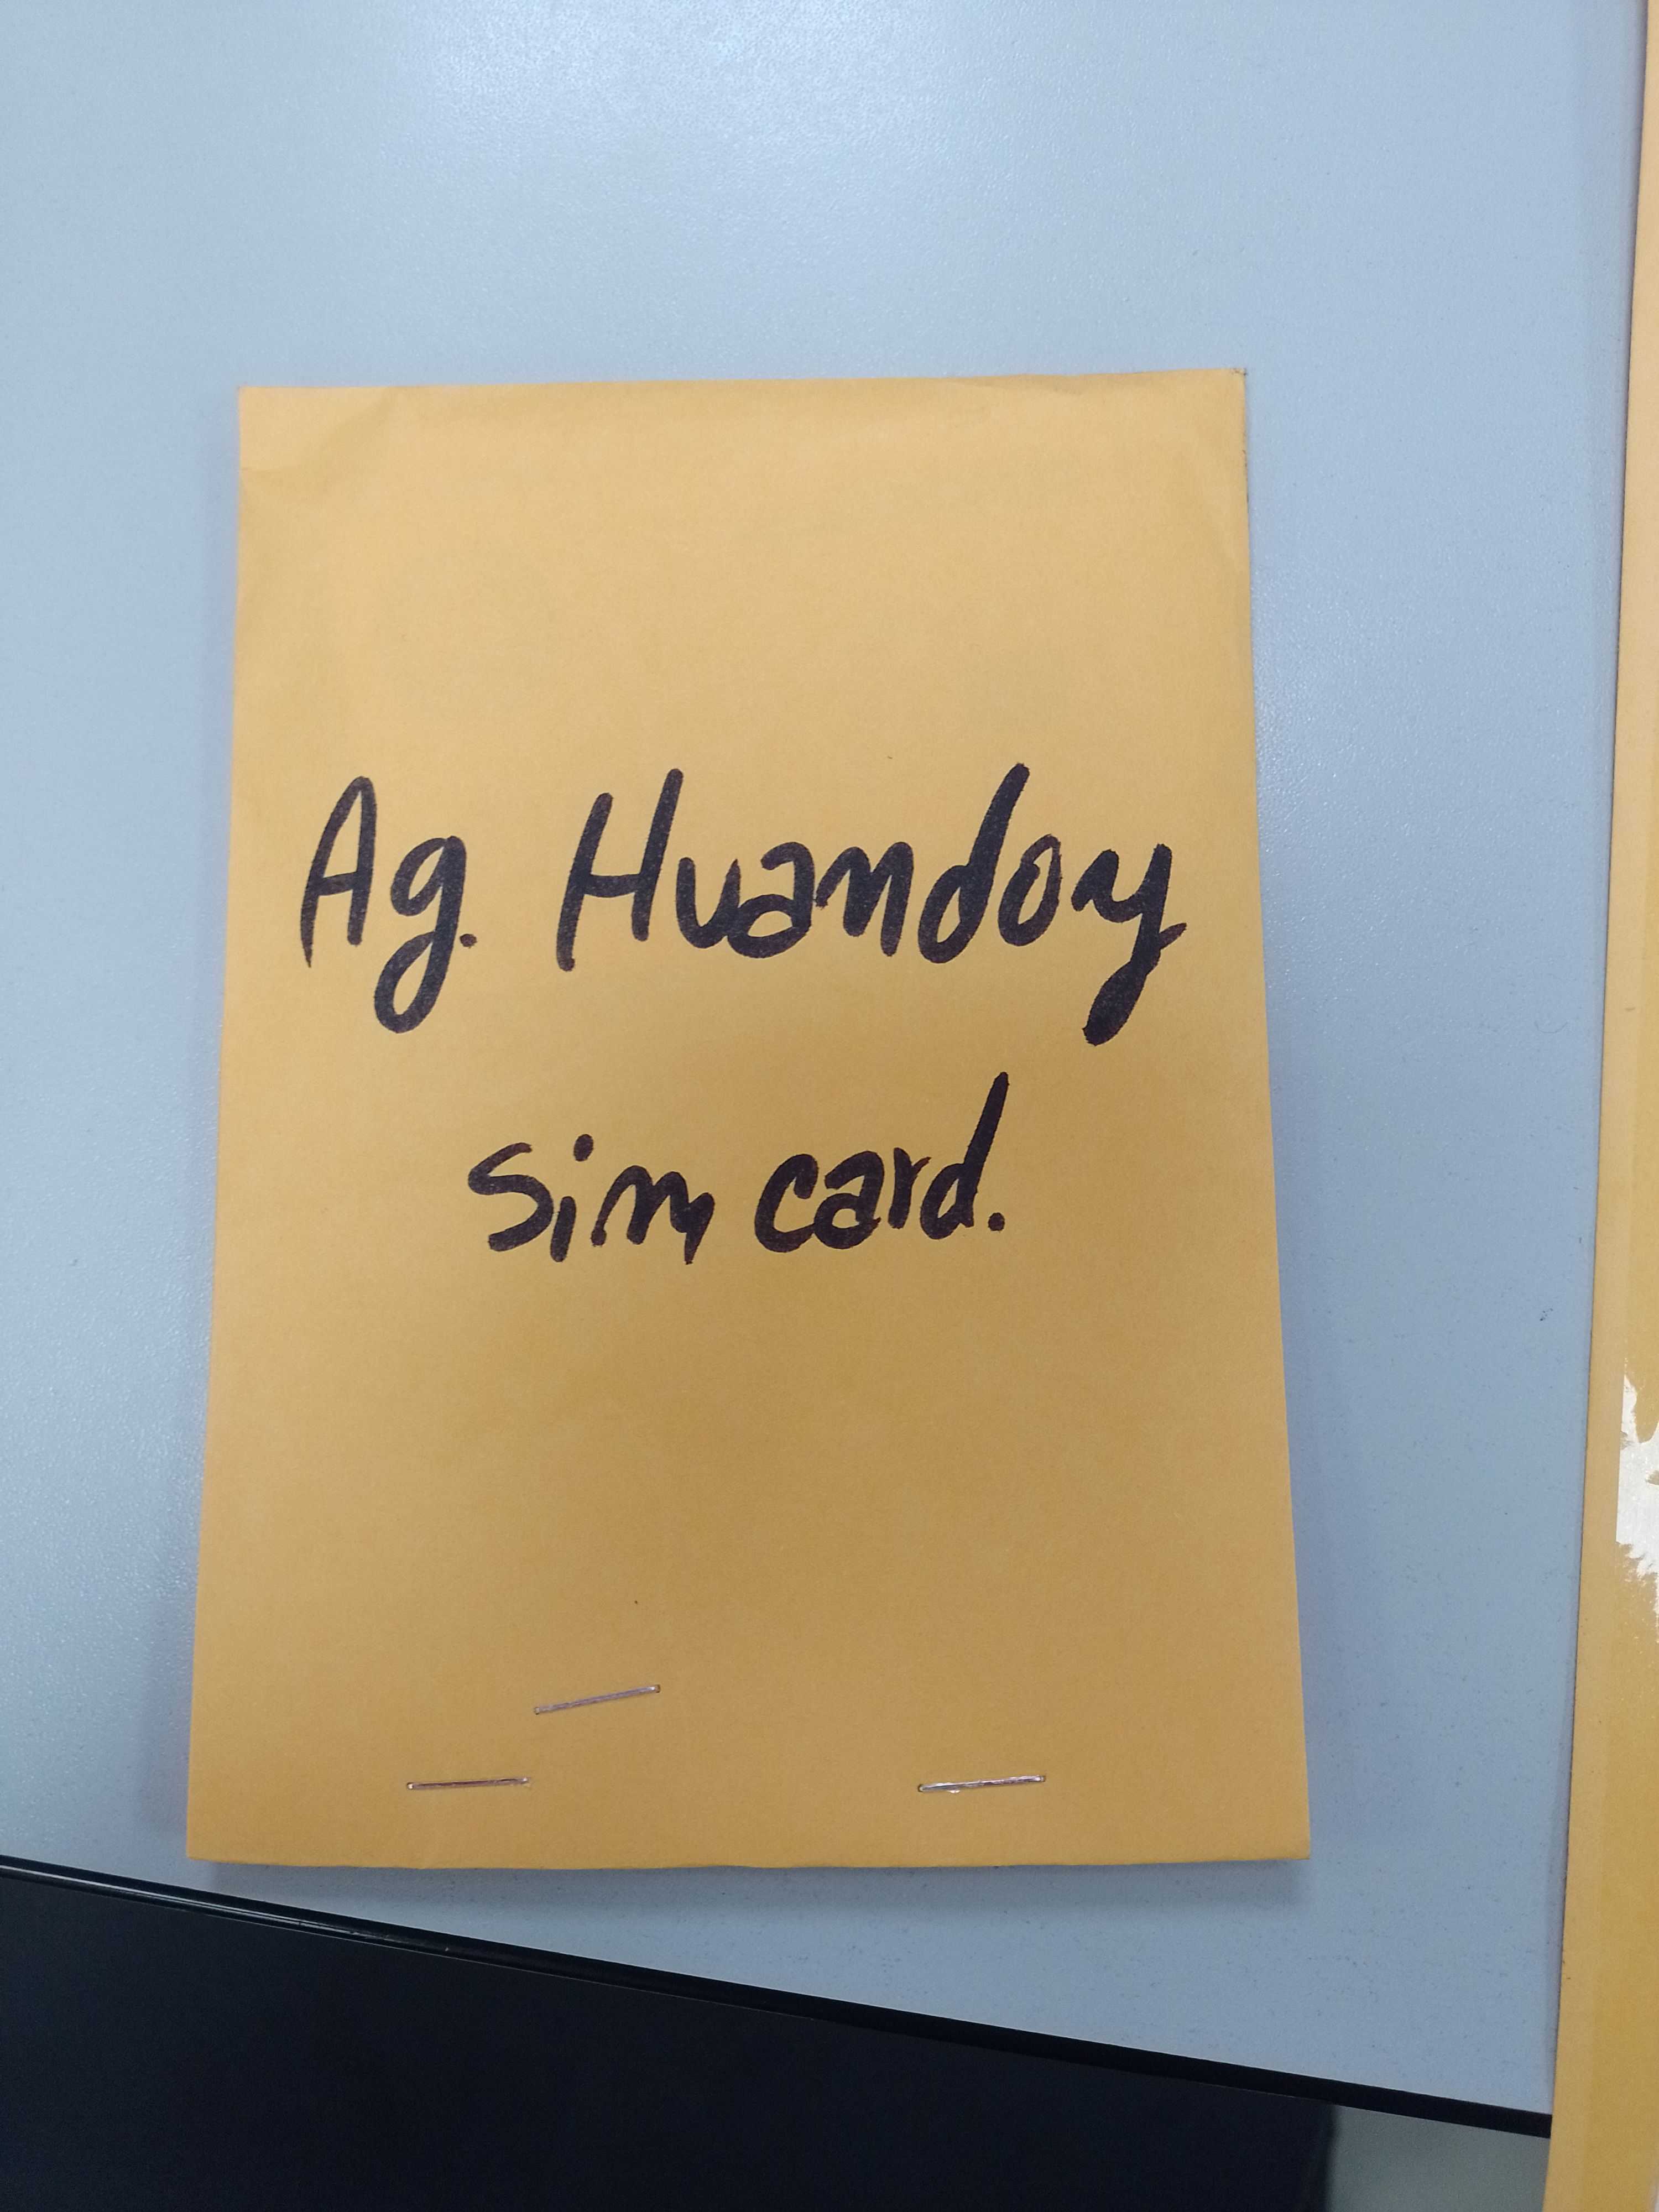 Ag. Huandoy
sim card.